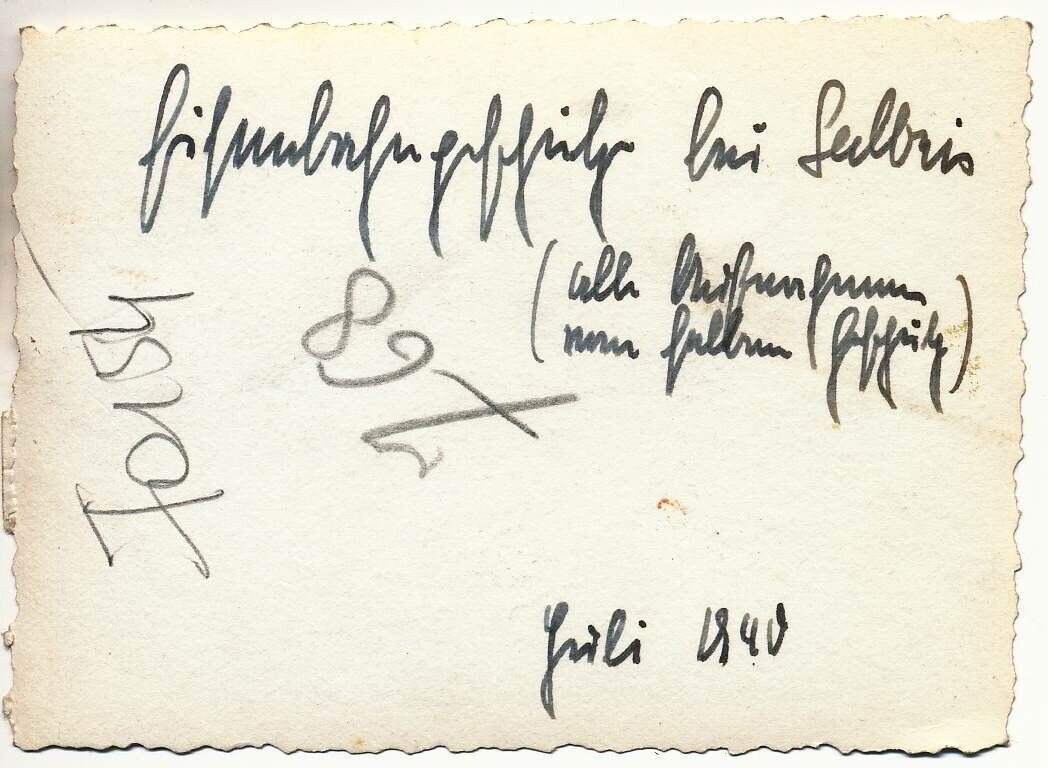 Eisenbahngeschütz bei Salbris
(alle Aufnahmen
vom selben Geschütz)
Juli 1940